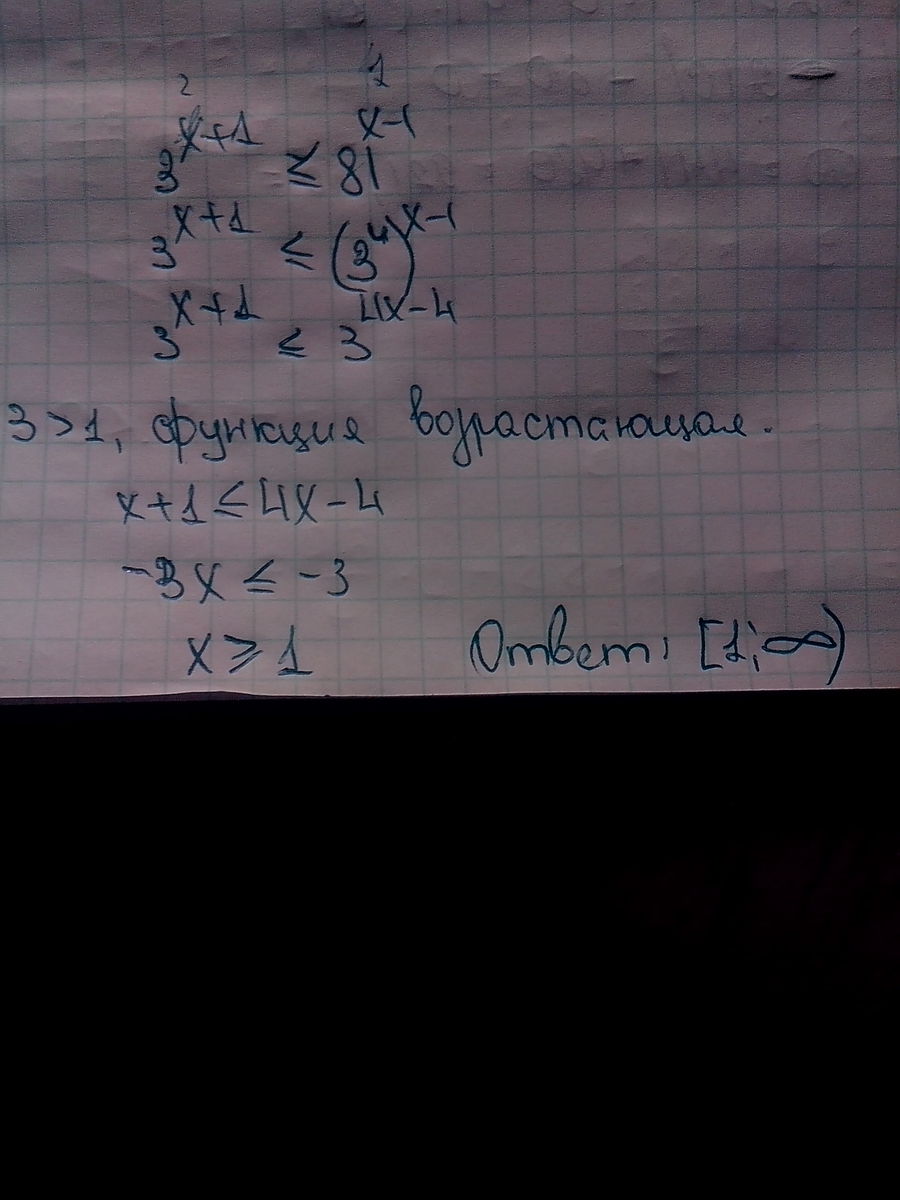 2 1
3^{x+1} ≤ 81^{x-1}
3^{x+1} ≤ (3^4)^{x-1}
3^{x+1} ≤ 3^{4x-4}
3>1, функция возрастающая.
x+1≤4x-4
-3x ≤ -3
x ≥ 1 Ответ: [1; ∞)